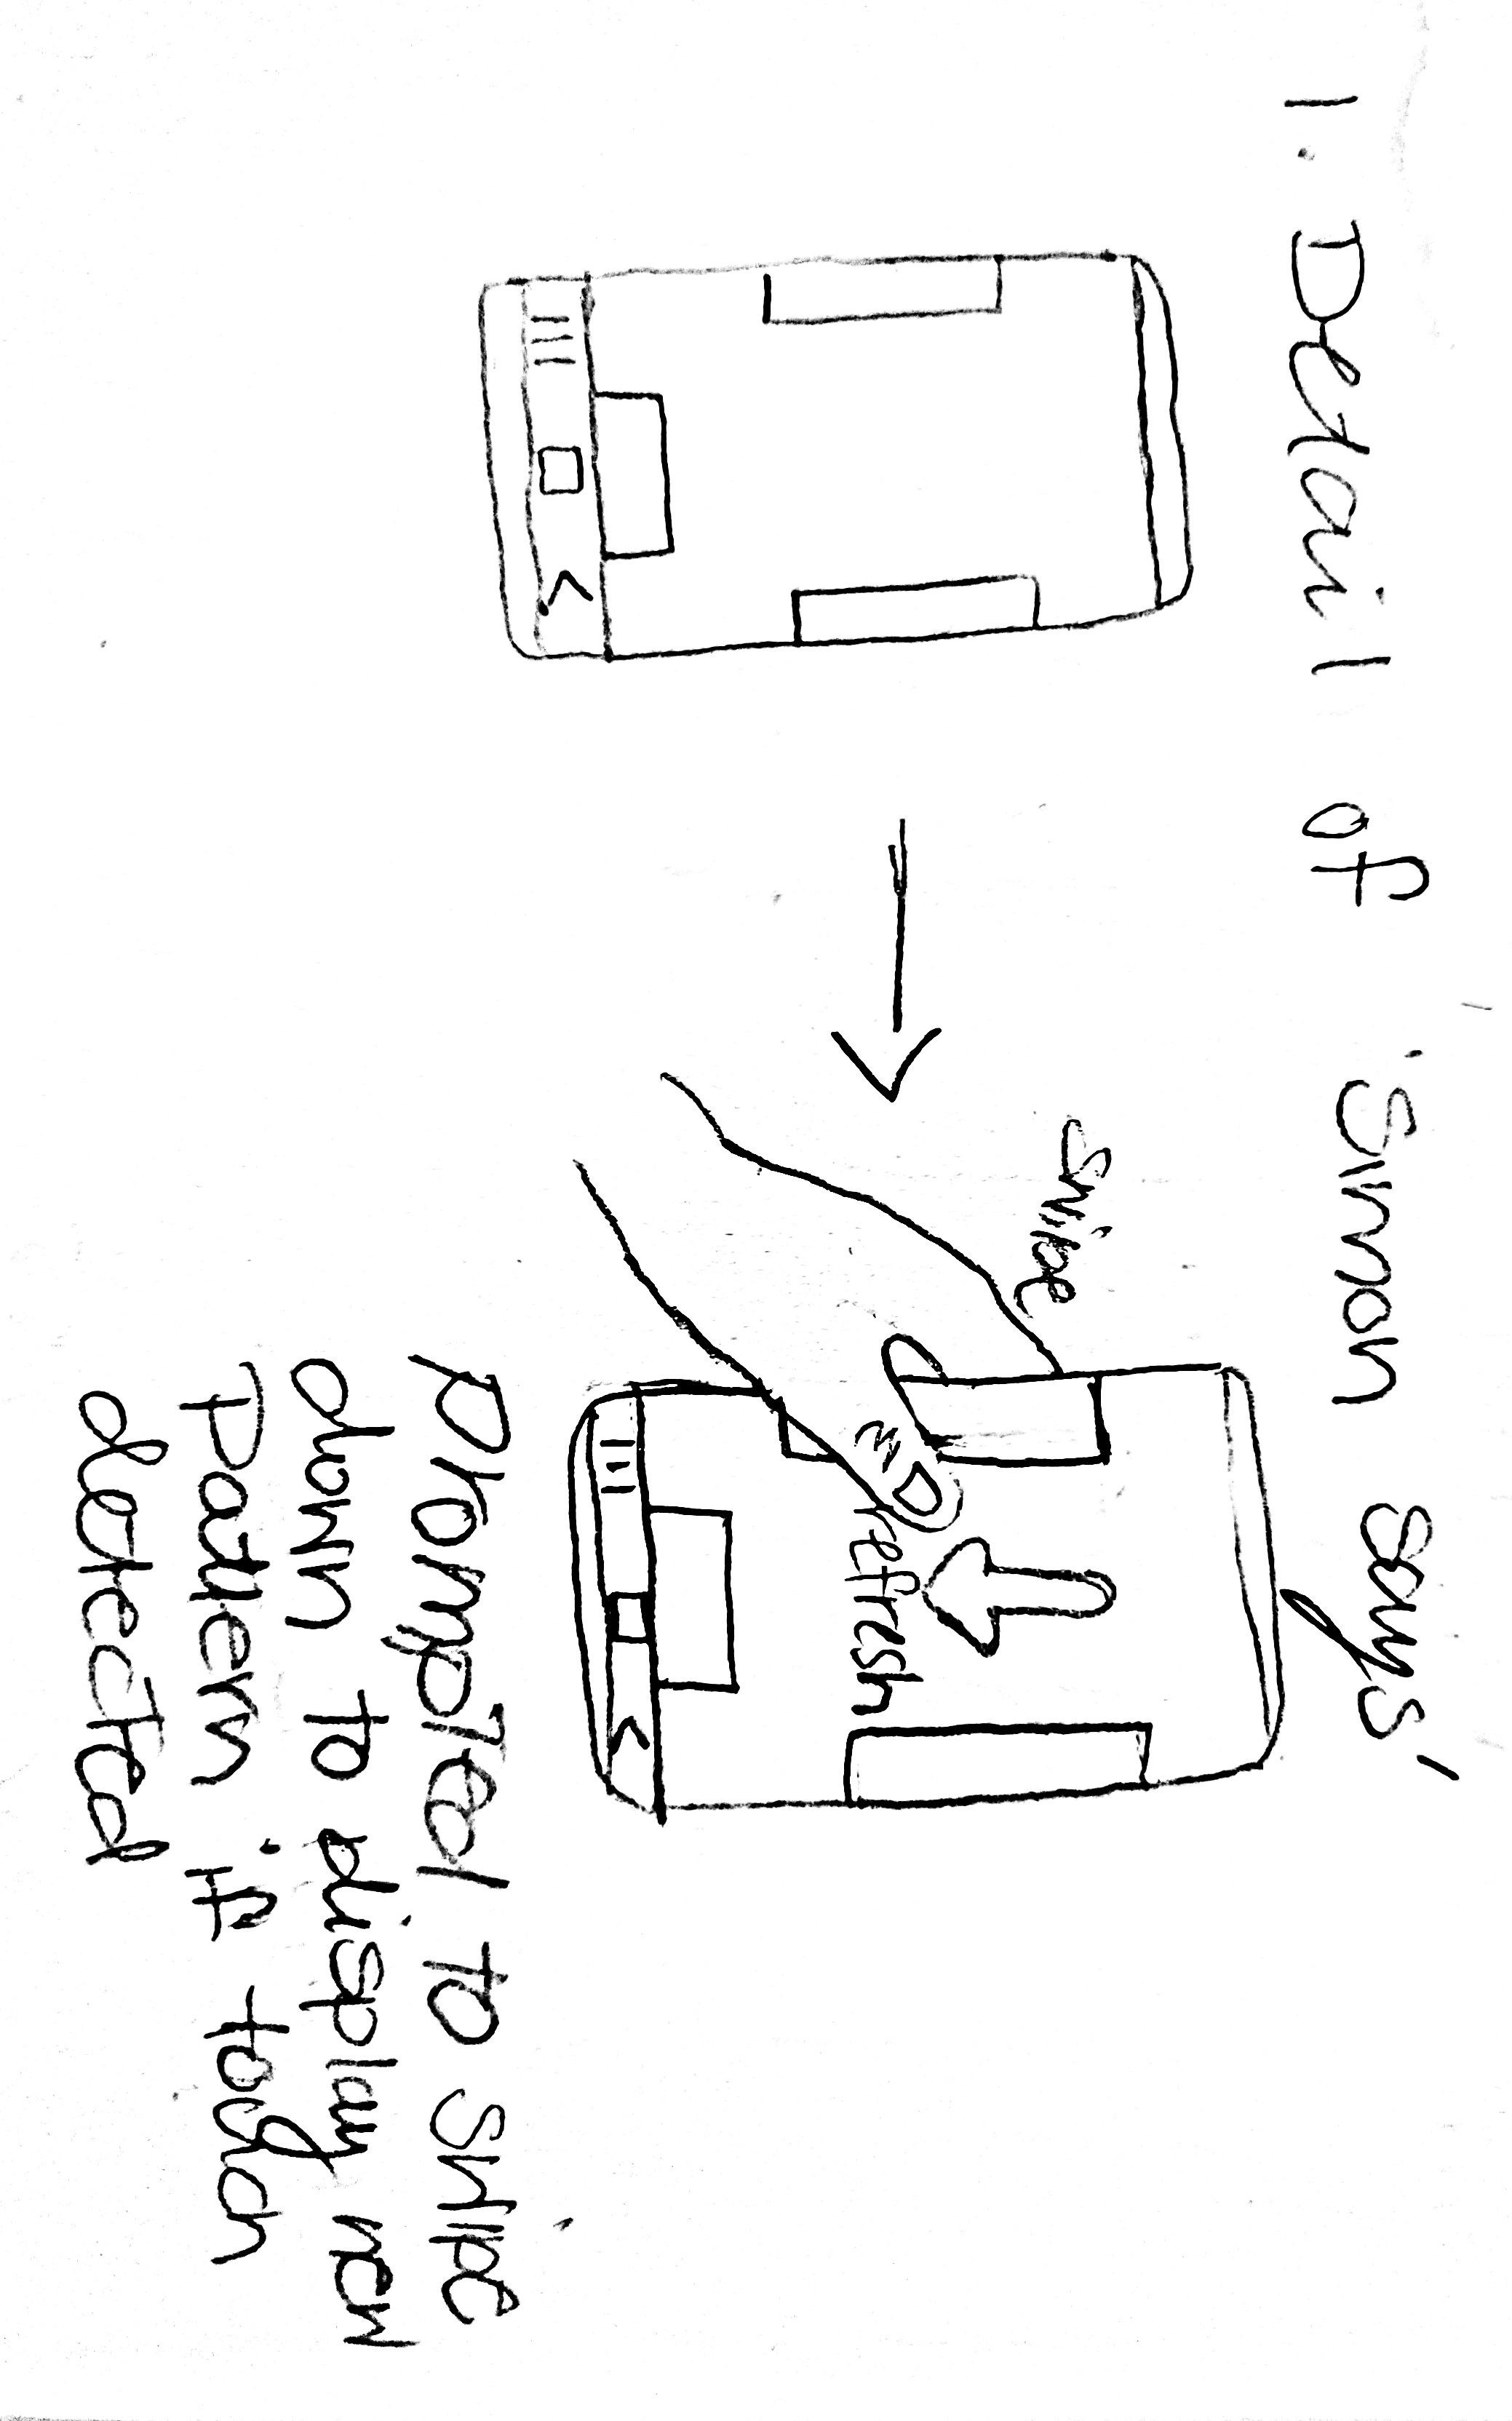 1. Detail of 'Simon says'
swipe
refresh
Prompted to swipe
down to display new
Pattern if touch
detected